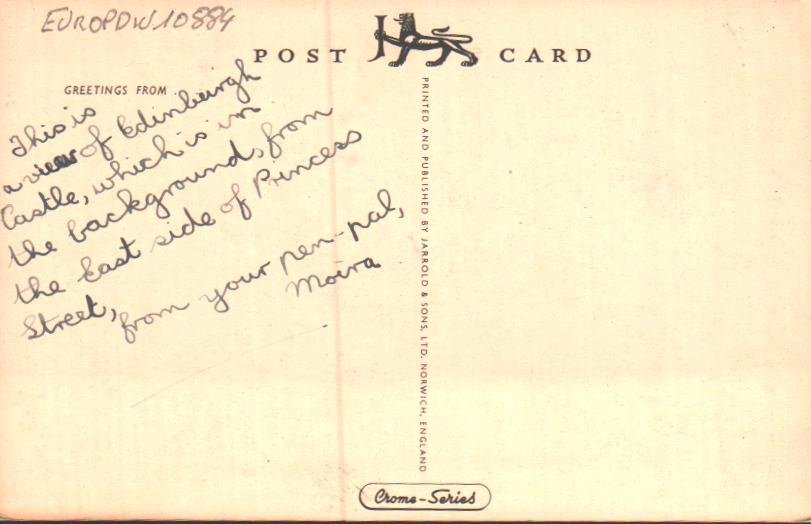 EUROPDW10884
POST CARD
GREETINGS FROM
This is
a view of Edinburgh
Castle, which is in
the background, from
the East side of Princess
Street,
from your pen-pal,
Moira
PRINTED AND PUBLISHED BY JARROLD & SONS, LTD. NORWICH, ENGLAND
Crome-Series